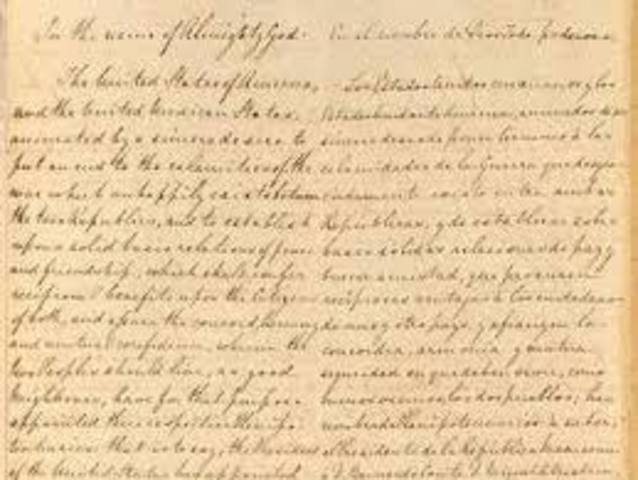 In the name of Almighty God.
The United States of America,
and the United Mexican States,
animated by a sincere desire to
put an end to the calamities of the
war which unhappily exists between
the two Republics, and to establish
upon a solid basis relations of peace
and friendship, which shall confer
reciprocal benefits upon the Citizens
of both, and assure the concord, harmony
and mutual confidence, wherein the
two Peoples should live, as good
Neighbours, have for that purpose
appointed their respective Plenipo-
tentiaries: that is to say, the President
of the United States has appointed
En el nombre de Dios Todo poderoso
Los Estados Unidos mexicanos y los
Estados Unidos de America, animados de un
sincero deseo de poner termino a las
calamidades de la Guerra que desgra-
ciadamente existe entre ambas
Republicas, y de establecer sobre
bases solidas relaciones de paz y
buena amistad, que procuren
reciprocas ventajas a los ciudadanos
de uno y otro pays, y afiancen la
concordia, armonia y mutua
seguridad en que deben vivir, como
buenos vecinos los dos pueblos, han
nombrado Plenipotenciarios, a saber,
el Presidente de la Republica mexicana